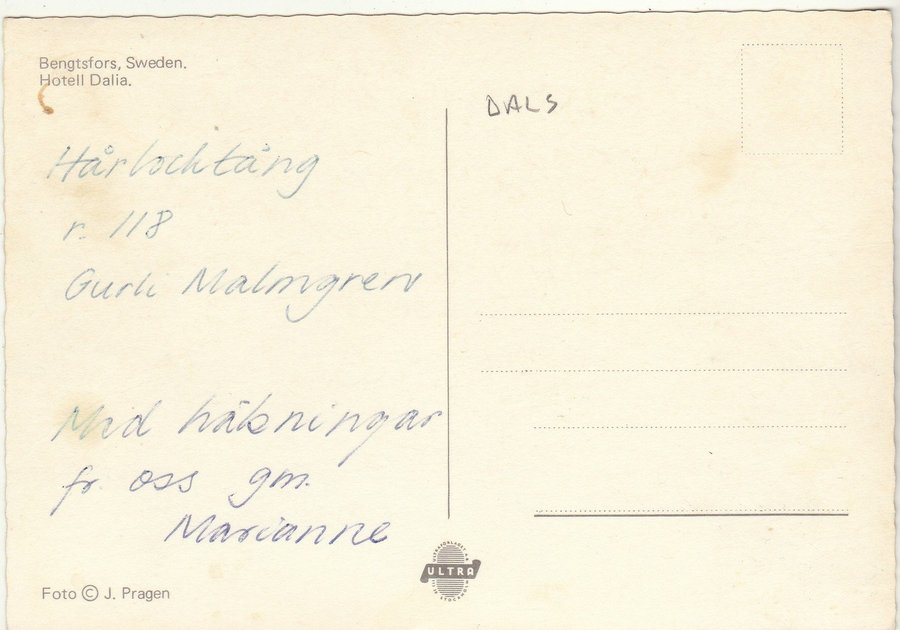 Bengtsfors, Sweden.
Hotell Dalia.
DALS
Hårlocktång
r. 118
Gurli Malmgren
Med hälsningar
fr. oss gm.
Marianne
ULTRA
STOCKHOLM
Foto © J. Pragen